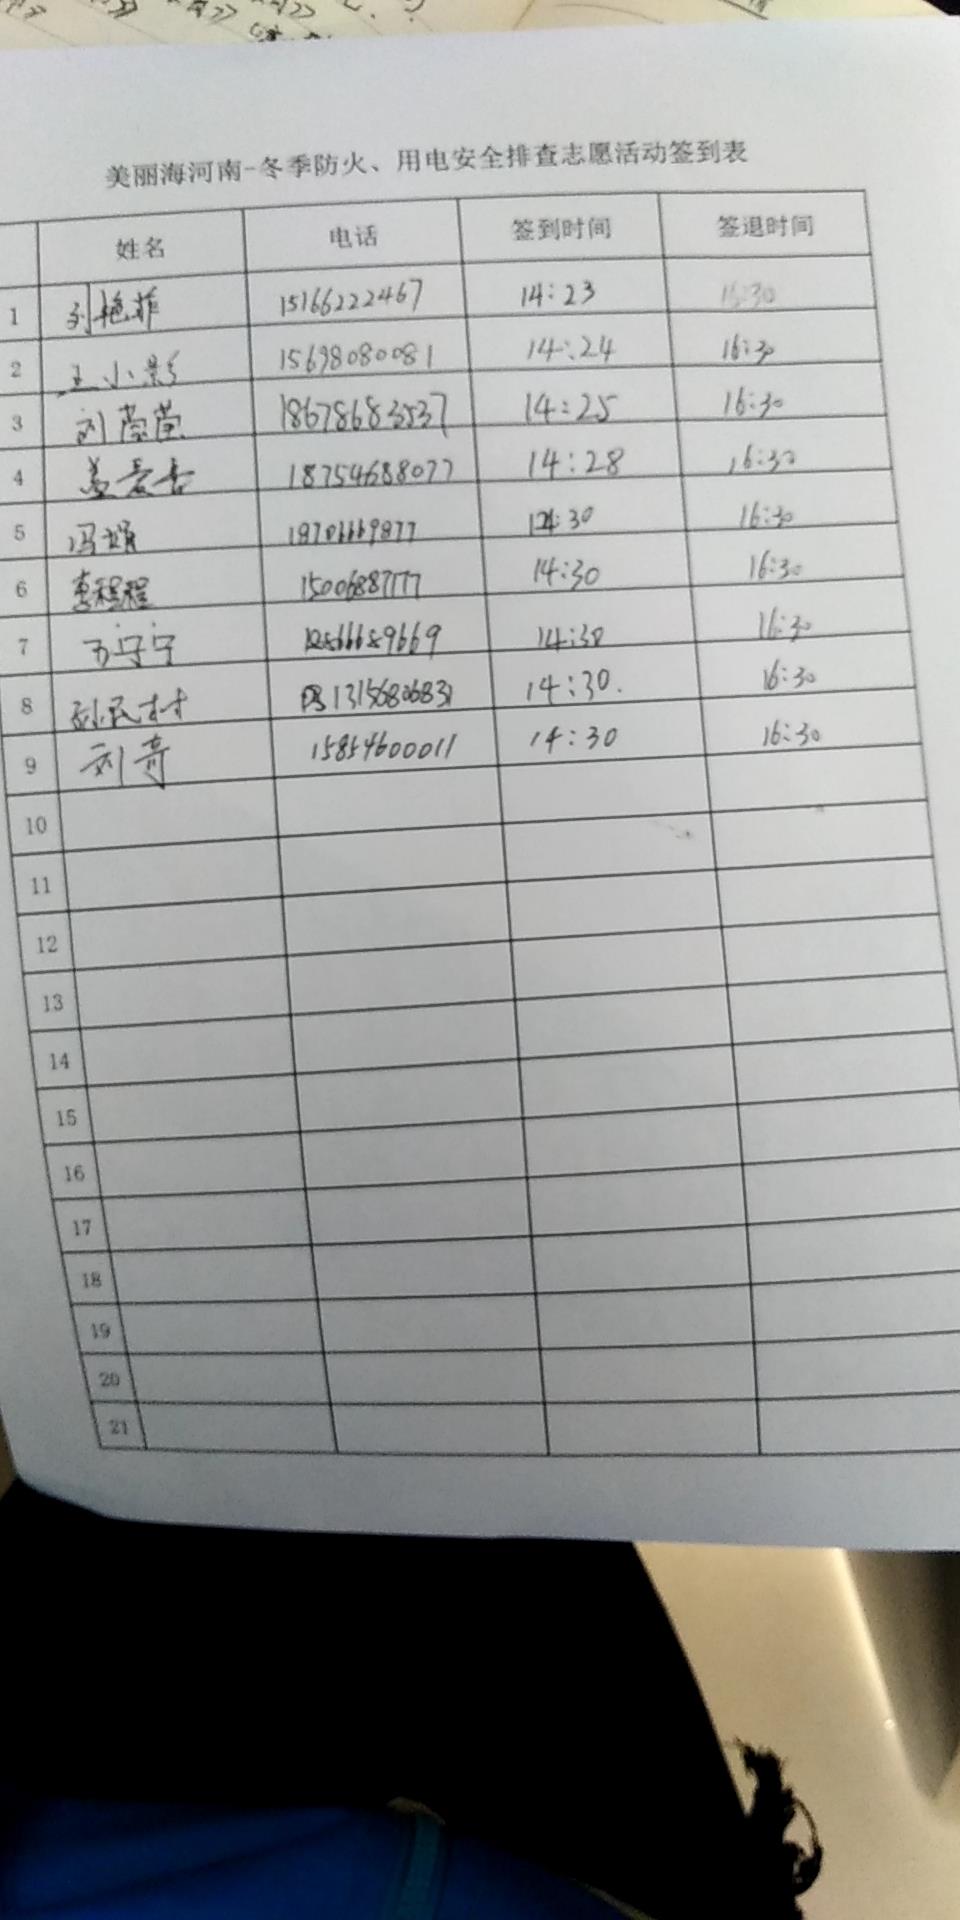 美丽海河南-冬季防火、用电安全排查志愿活动签到表
姓名 电话 签到时间 签退时间
1 刘艳菲 15166222467 14:23 16:30
2 王小影 15698080081 14:24 16:30
3 刘莹莹 18678683537 14:25 16:30
4 18754688077 14:28 16:30
5 冯娟 14:30 16:30
6 程程 15006887177 14:30 16:30
7 万守宁 14:30 16:30
8 孙民村 13156806831 14:30. 16:30
9 刘奇 15854600011 14:30 16:30
10
11
12
13
14
15
16
17
18
19
20
21